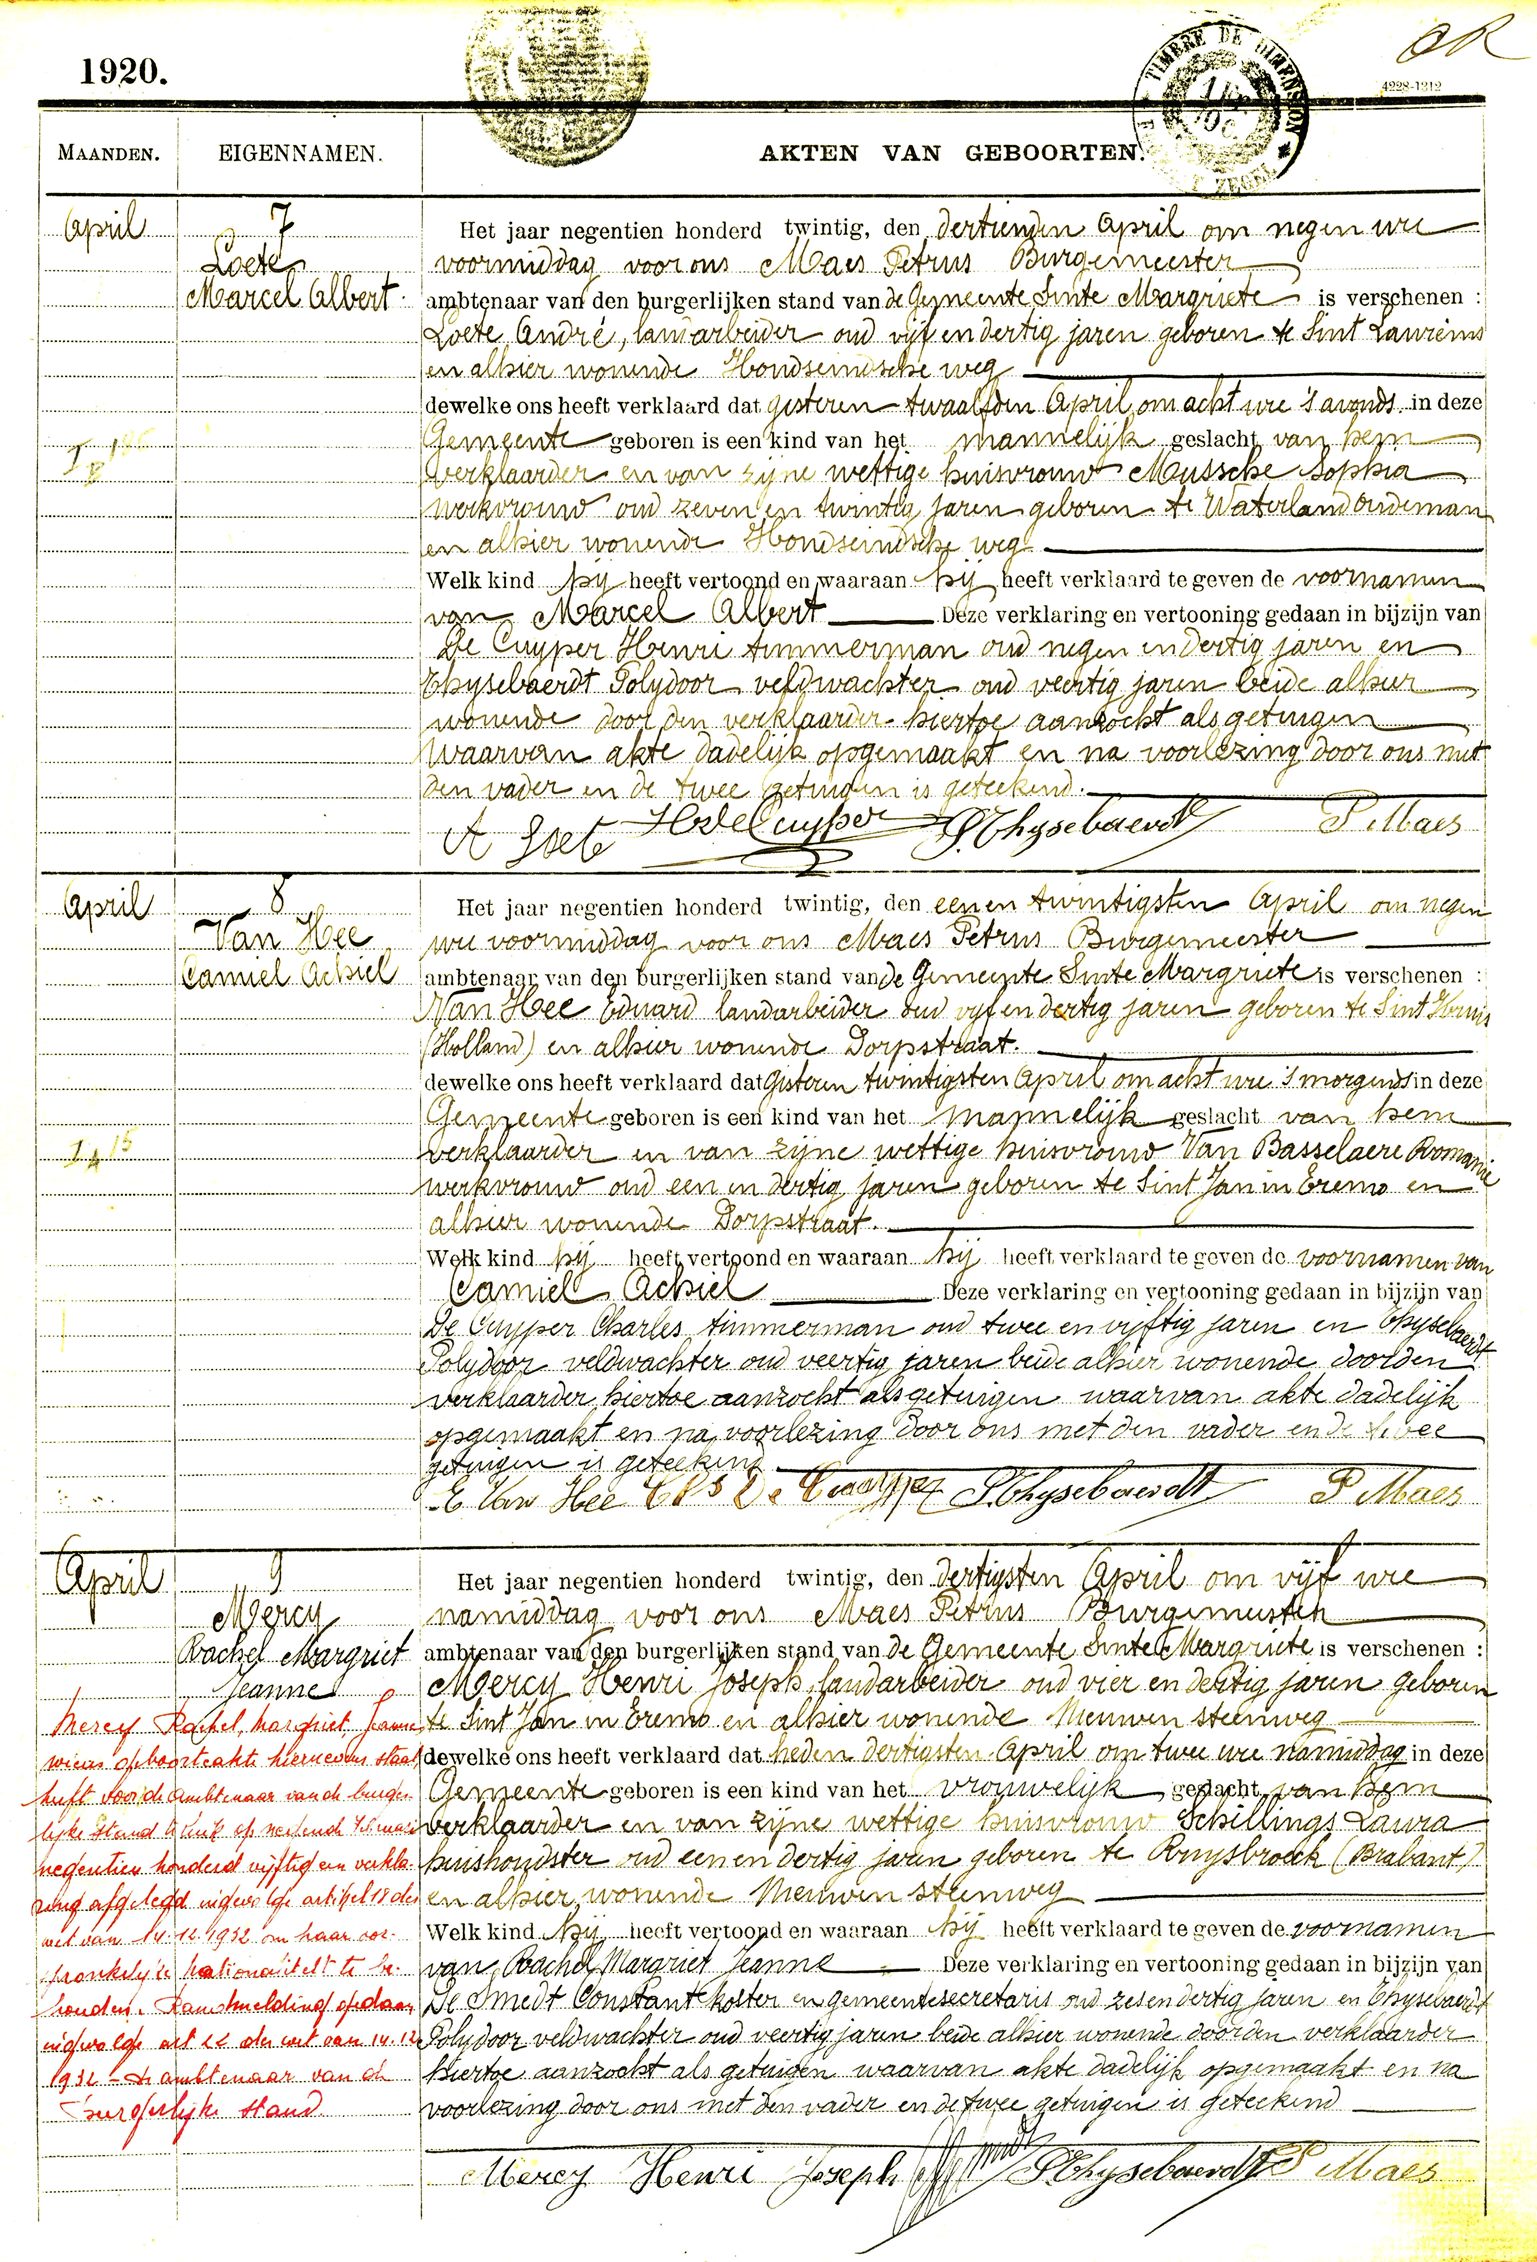 1920.
OR
TIMBRE DE DIMENSION
ZEGEL
4228-1312
MAANDEN.
EIGENNAMEN.
AKTEN VAN GEBOORTEN.
April
7
Loete
Marcel Albert
Het jaar negentien honderd twintig, den dertienden April om negen ure
voormiddag voor ons Maes Petrus Burgemeester
ambtenaar van den burgerlijken stand van de Gemeente Sinte Margriete is verschenen :
Loete André, landarbeider oud vijf en dertig jaren geboren te Sint Laureins
en alhier wonende Hondseindsche weg
dewelke ons heeft verklaard dat gisteren twaalfden April om acht ure 's avonds in deze
Gemeente geboren is een kind van het mannelijk geslacht van hem
verklaarder en van zijne wettige huisvrouw Mussche Sophia
werkvrouw oud zeven en twintig jaren geboren te Waterland Oudeman
en alhier wonende Hondseindsche weg
Welk kind hij heeft vertoond en waaraan hij heeft verklaard te geven de voornamen
van Marcel Albert Deze verklaring en vertooning gedaan in bijzijn van
De Cuyper Henri timmerman oud negen en dertig jaren en
Thysebaerdt Polydoor veldwachter oud veertig jaren beide alhier
wonende door den verklaarder hiertoe aanzocht als getuigen
Waarvan akte dadelijk opgemaakt en na voorlezing door ons met
den vader en de twee getuigen is geteekend.
A Loete H De Cuyper P. Thysebaerdt P Maes
April
8
Van Hee
Camiel Achiel
Het jaar negentien honderd twintig, den een en twintigsten April om negen
ure voormiddag voor ons Maes Petrus Burgemeester
ambtenaar van den burgerlijken stand van de Gemeente Sinte Margriete is verschenen :
Van Hee Eduard landarbeider oud vijf en dertig jaren geboren te Sint Kruis
(Holland) en alhier wonende Dorpstraat.
dewelke ons heeft verklaard dat Gisteren twintigsten April om acht ure 's morgends in deze
Gemeente geboren is een kind van het mannelijk geslacht van hem
verklaarder en van zijne wettige huisvrouw Van Basselaere Romanie
werkvrouw oud een en dertig jaren geboren te Sint Jan in Eremo en
alhier wonende Dorpstraat.
Welk kind hij heeft vertoond en waaraan hij heeft verklaard te geven de voornamen van
Camiel Achiel Deze verklaring en vertooning gedaan in bijzijn van
De Cuyper Charles timmerman oud twee en vyftig jaren en Thysebaerdt
Polydoor veldwachter oud veertig jaren beide alhier wonende door den
verklaarder hiertoe aanzocht als getuigen waarvan akte dadelijk
opgemaakt en na voorlezing door ons met den vader en de twee
getuigen is geteekend
E Van Hee Chs De Cuyper P. Thysebaerdt P Maes
April
9
Mercy
Rachel Margriet
Jeanne
Het jaar negentien honderd twintig, den dertigsten April om vijf ure
namiddag voor ons Maes Petrus Burgemeester
ambtenaar van den burgerlijken stand van de Gemeente Sinte Margriete is verschenen :
Mercy Henri Joseph landarbeider oud vier en dertig jaren geboren
te Sint Jan in Eremo en alhier wonende Nieuwen steenweg
dewelke ons heeft verklaard dat heden dertigsten April om twee ure namiddag in deze
Gemeente geboren is een kind van het vrouwelijk geslacht van hem
verklaarder en van zijne wettige huisvrouw Schillings Laura
huishoudster oud een en dertig jaren geboren te Ruysbroeck (Brabant)
en alhier wonende Nieuwen steenweg
Welk kind hij heeft vertoond en waaraan hij heeft verklaard te geven de voornamen
van Rachel Margriet Jeanne Deze verklaring en vertooning gedaan in bijzijn van
De Smedt Constant koster en gemeentesecretaris oud zes en dertig jaren en Thysebaerdt
Polydoor veldwachter oud veertig jaren beide alhier wonende door den verklaarder
hiertoe aanzocht als getuigen waarvan akte dadelijk opgemaakt en na
voorlezing door ons met den vader en de twee getuigen is geteekend
Mercy Henri Joseph P. Thysebaerdt P Maes
Mercy Rachel, Margriet, Jeanne
wiens geboorteakte hiernevens staat
heeft voor de ambtenaar van de burger
lijke stand
negentien honderd vijftig een verkla-
ring afgelegd ingevolge artikel 18 der
wet van 14.12.1932 om haar oor-
spronkelijke nationaliteit te be-
houden. Randmelding gedaan
ingevolge art 22 der wet van 14.12
1932 - de ambtenaar van de
burgerlijke stand